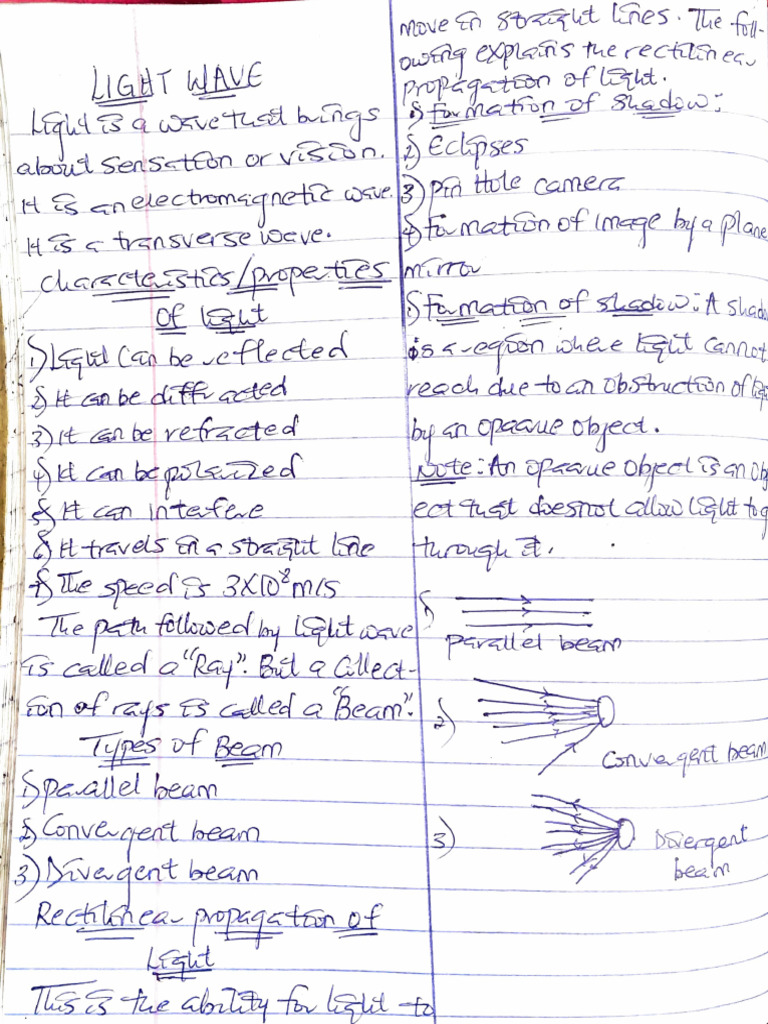 LIGHT WAVE
Light is a wave that brings
about sensation or vision.
It is an electromagnetic wave.
It is a transverse wave.
Characteristics/properties
Of light
1) Light Can be reflected
2) It can be diffracted
3) It can be refracted
4) It can be polarized
5) It can interfere
6) It travels in a straight line
7) The speed is 3X10⁸m/s
The path followed by light wave
is called a "Ray". But a Collect-
ion of rays is called a "Beam".
Types of Beam
1) parallel beam
2) Convergent beam
3) Divergent beam
Rectilinear propagation of
Light
This is the ability for light to
move in straight lines. The foll-
owing explains the rectilinear
propagation of light.
1) Formation of shadow:
2) Eclipses
3) Pin Hole camera
4) Formation of image by a plane
mirror
1) Formation of shadow: A shado
is a region where light cannot
reach due to an obstruction of lig
by an opaque object.
Note: An opaque object is an ob
ect that does not allow light to g
through it.
1)
parallel beam
2)
Convergent beam
3)
Divergent
beam